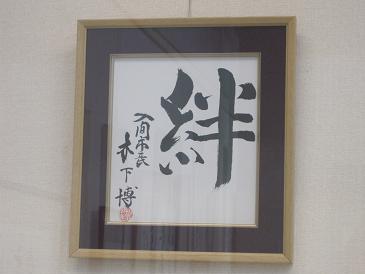 絆
入間市長
木下博